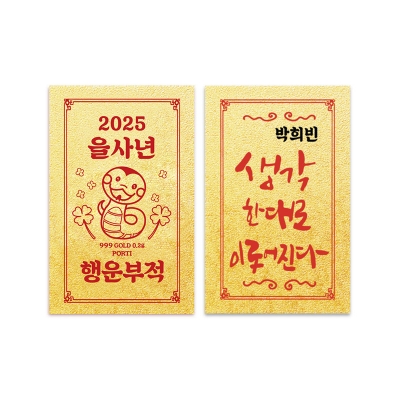 2025
을사년
999 GOLD 0.2g
PORTI
행운부적
박희빈
생각
한대로
이루어진다